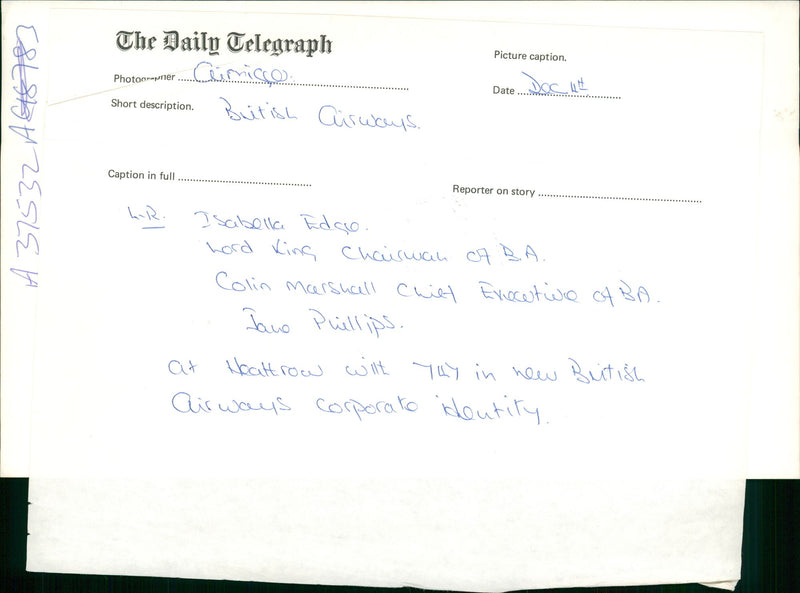 The Daily Telegraph
Picture caption.
Photographer
Date Dec 4th
Short description. British Airways.
Caption in full
Reporter on story
L-R. Isabella Edge.
Lord King Chairman of BA.
Colin Marshall Chief Executive of BA.
Jane Phillips.
at Heathrow with 747 in new British
Airways corporate identity.